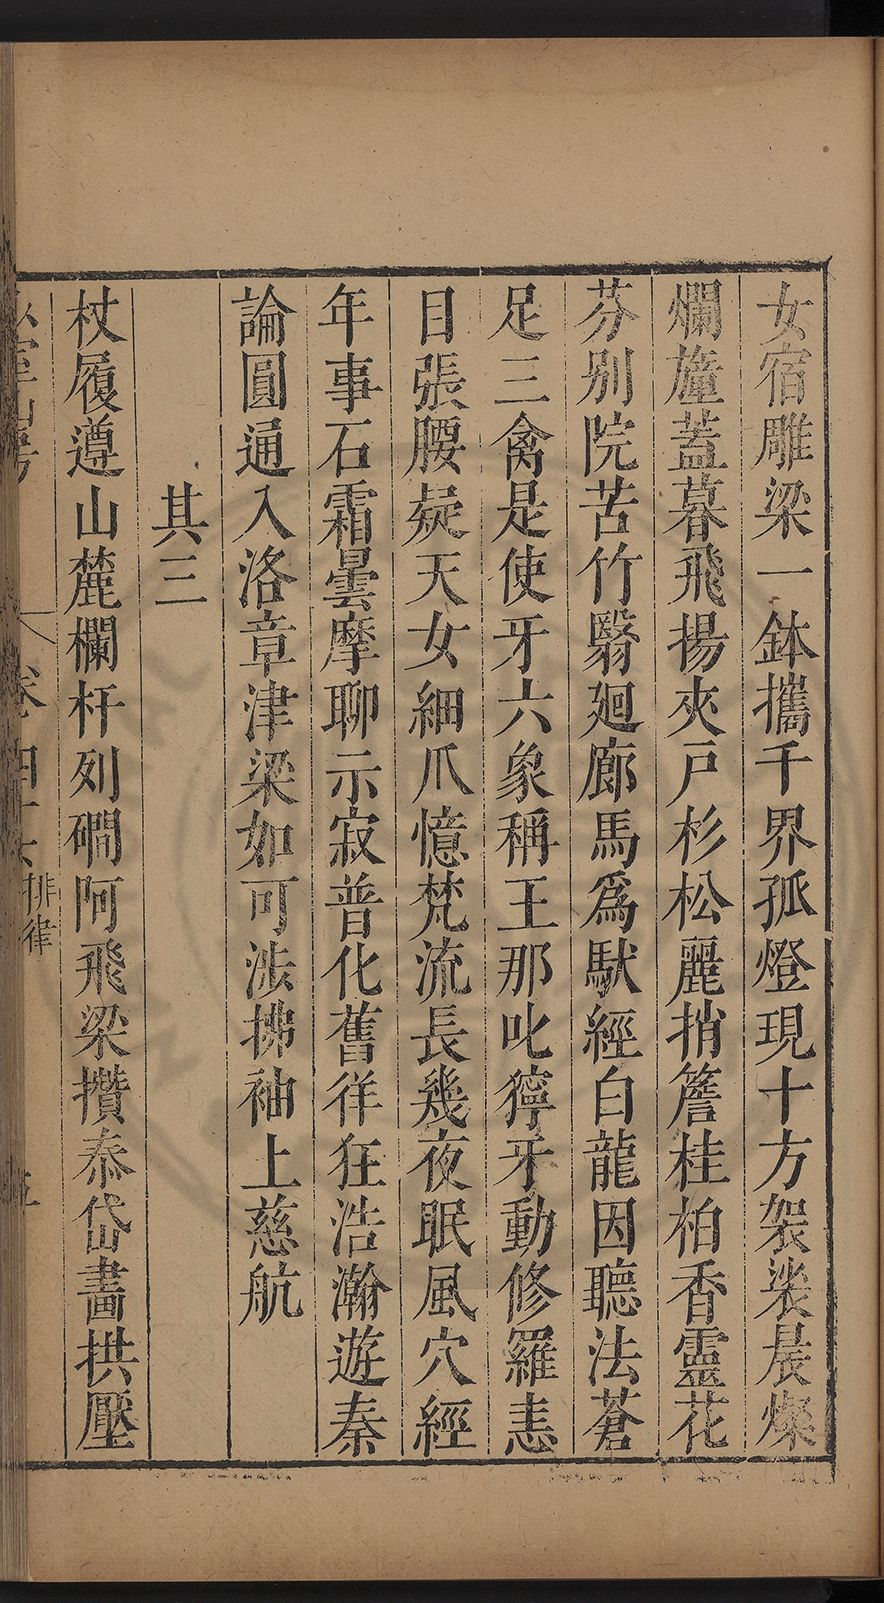 女宿雕梁一鉢攜千界孤燈現十方袈裟晨燦
爛旛蓋暮飛揚夾戸杉松麗捎簷桂柏香靈花
芬别院苦竹翳廻廊馬爲馱經白龍因聽法蒼
足三禽是使牙六象稱王那叱獰牙動修羅恚
目張腰疑天女細爪憶梵流長幾夜眠風穴經
年事石霜曇摩聊示寂普化舊徉狂浩瀚遊秦
論圓通入洛章津梁如可涉拂袖上慈航
其三
杖履遵山麓欄杆列磵阿飛梁攢泰岱畵拱壓
卷四十六 排律